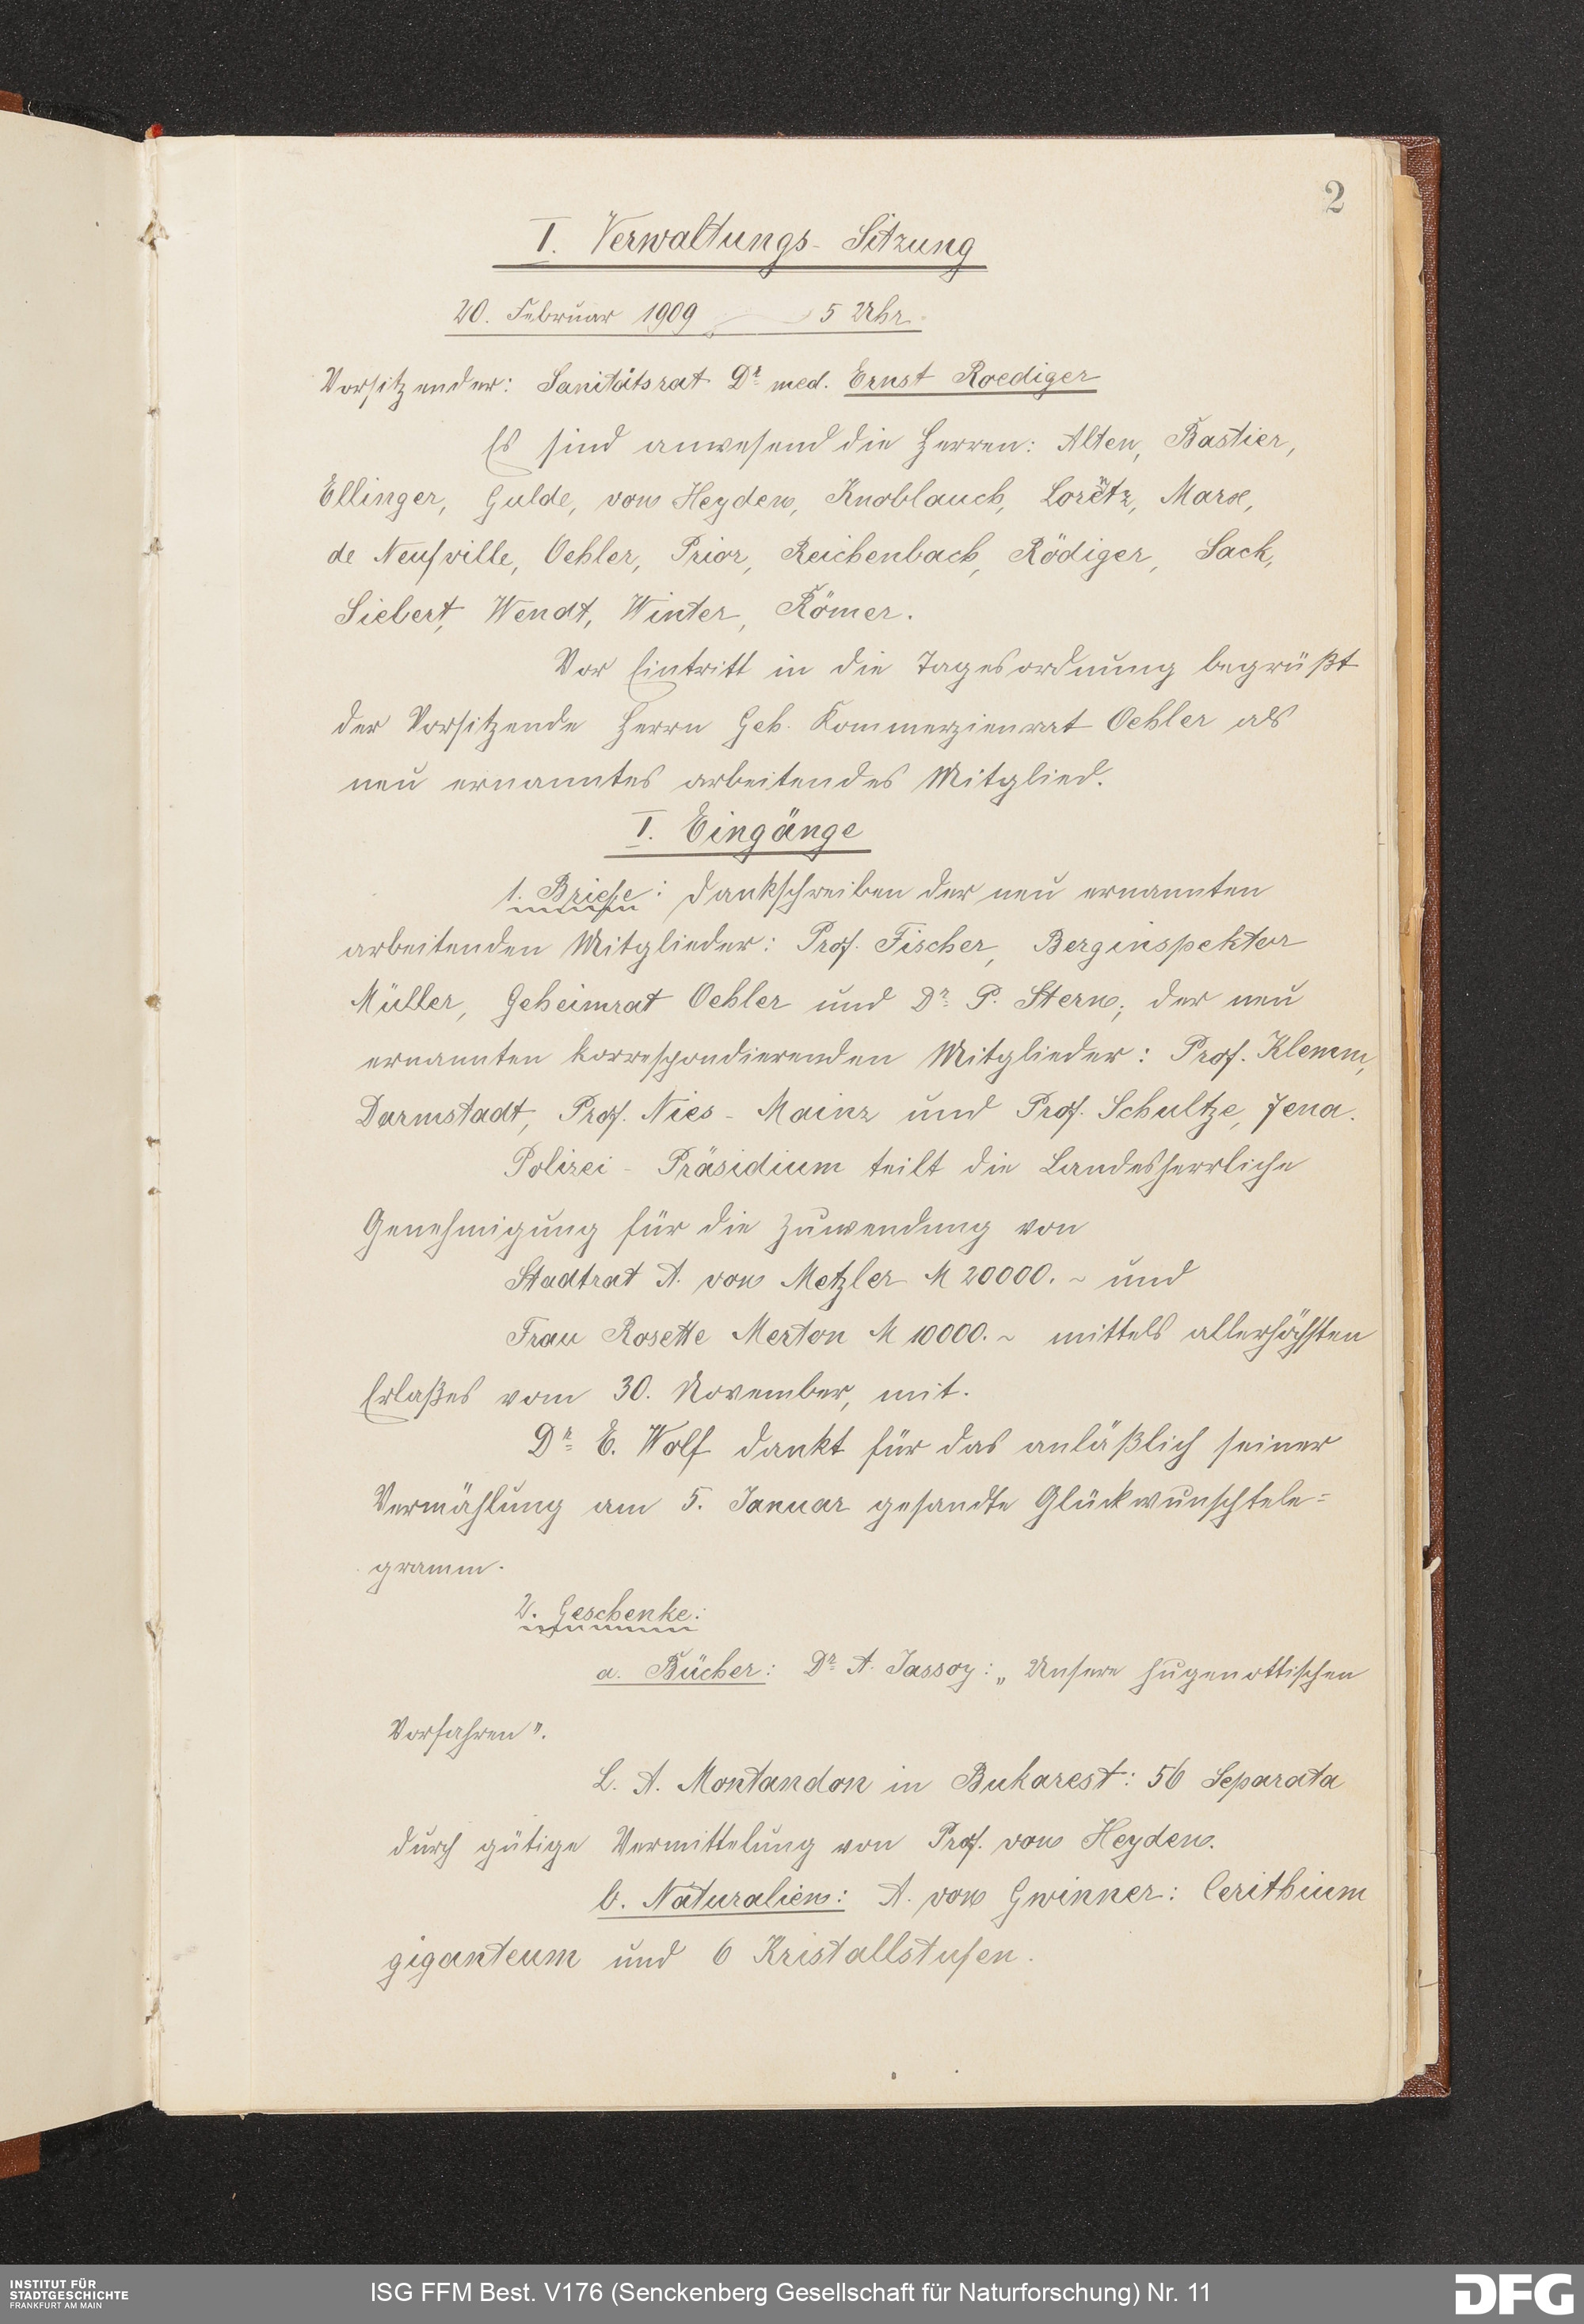 2
I. Verwaltungs-Sitzung
20. Februar 1909 5 Uhr.
Vorsitzender: Sanitätsrat Dr. med. Ernst Roediger
Es sind anwesend die Herren: Alten, Bastier,
Ellinger, Gulde, von Heyden, Knoblauch, Loretz, Marx,
de Neufville, Oehler, Prior, Reichenbach, Rödiger, Sack,
Siebert, Wendt, Winter, Römer.
Vor Eintritt in die Tagesordnung begrüßt
der Vorsitzende Herrn Geh. Kommerzienrat Oehler als
neu ernanntes arbeitendes Mitglied.
I. Eingänge
1. Briefe: Dankschreiben der neu ernannten
arbeitenden Mitglieder: Prof. Fischer, Berginspektor
Müller, Geheimrat Oehler und Dr. P. Stern; der neu
ernannten korrespondierenden Mitglieder: Prof. Klemm,
Darmstadt, Prof. Nies-Mainz und Prof. Schultze, Jena.
Polizei-Präsidium teilt die Landesherrliche
Genehmigung für die Zuwendung von
Stadtrat A. von Metzler M 20000.~ und
Frau Rosette Merton M 10000.~ mittels allerhöchsten
Erlaßes vom 30. November, mit.
Dr. E. Wolf dankt für das anläßlich seiner
Vermählung am 5. Januar gesandte Glückwunschtele=
gramm.
2. Geschenke:
a. Bücher: Dr. A. Jassoy: „Unsere hugenottischen
Vorfahren".
L. A. Montandon in Bukarest: 56 Separata
durch gütige Vermittelung von Prof. von Heyden.
b. Naturalien: A. von Gwinner: Cerithium
giganteum und 6 Kristallstufen.
INSTITUT FÜR
STADTGESCHICHTE
FRANKFURT AM MAIN
ISG FFM Best. V176 (Senckenberg Gesellschaft für Naturforschung) Nr. 11
DFG